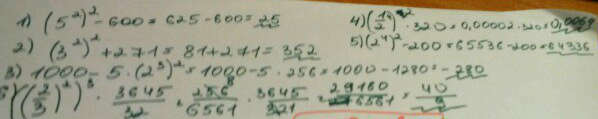 1) (5²)² - 600 = 625 - 600 = 25
2) (3²)² + 271 = 81 + 271 = 352
3) 1000 - 5 · (2³)² = 1000 - 5 · 256 = 1000 - 1280 = - 280
4) · 320 = 0,00002 · 320 = 0,0064
5) (2⁴)² - 200 = 65536 - 200 = 64336
6) ((2/3)²)³ · 3645/32 = 256/6561 · 3645/321 = 29160/6561 = 40/9